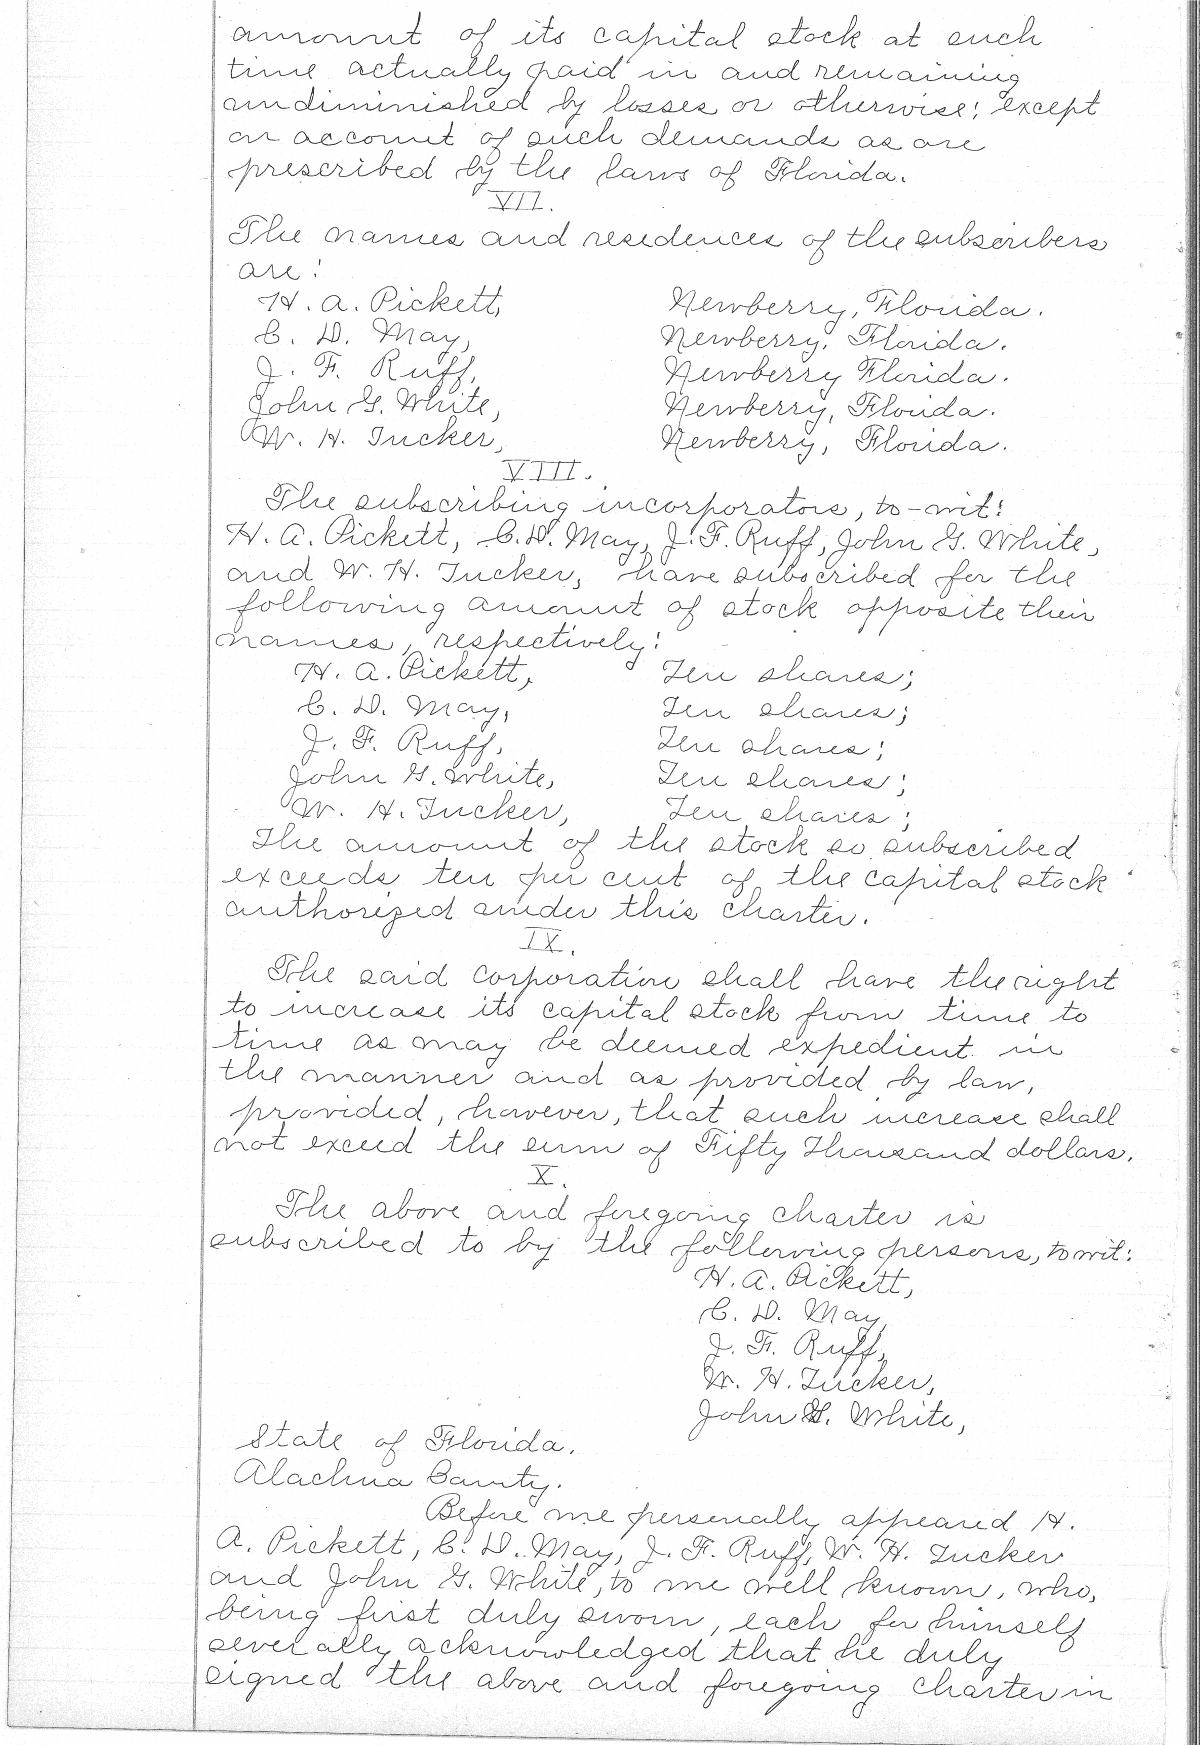 amount of its capital stock at such
time actually paid in and remaining
undiminished by losses or otherwise; except
on account of such demands as are
prescribed by the laws of Florida.
VII.
The names and residences of the subscribers
are:
H. A. Pickett, Newberry, Florida.
C. D. May, Newberry, Florida.
J. F. Ruff, Newberry Florida.
John G. White, Newberry, Florida.
W. H. Tucker, Newberry, Florida.
VIII.
The subscribing incorporators, to-wit:
H. A. Pickett, C. D. May, J. F. Ruff, John G. White,
and W. H. Tucker, have subscribed for the
following amount of stock opposite their
names, respectively:
H. A. Pickett, Ten shares;
C. D. May, Ten shares;
J. F. Ruff, Ten shares;
John G. White, Ten shares;
W. H. Tucker, Ten shares;
The amount of the stock so subscribed
exceeds ten per cent of the capital stock
authorized under this charter.
IX.
The said corporation shall have the right
to increase its capital stock from time to
time as may be deemed expedient in
the manner and as provided by law,
provided, however, that such increase shall
not exceed the sum of Fifty Thousand dollars.
X.
The above and foregoing charter is
subscribed to by the following persons, to wit:
H. A. Pickett,
C. D. May,
J. F. Ruff,
W. H. Tucker,
John G. White,
State of Florida.
Alachua County.
Before me personally appeared H.
A. Pickett, C. D. May, J. F. Ruff, W. H. Tucker
and John G. White, to me well known, who,
being first duly sworn, each for himself
severally acknowledged that he duly
signed the above and foregoing charter in